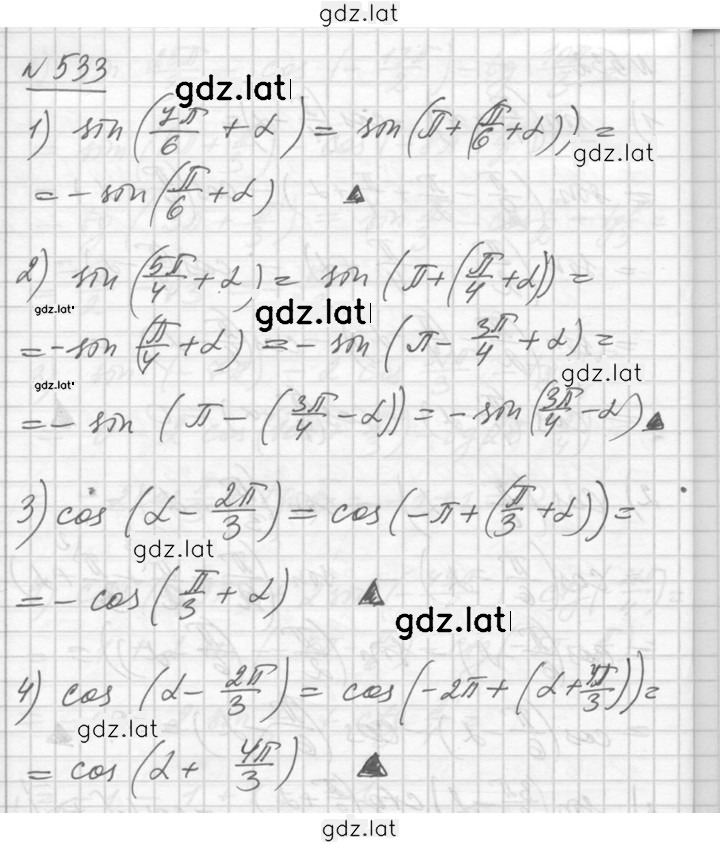 gdz.lat
№ 533
gdz.lat
1) sin(7π/6 + α) = sin(π + (π/6 + α)) =
gdz.lat
= - sin(π/6 + α) ▲
2) sin(5π/4 + α) = sin(π + (π/4 + α)) =
gdz.lat
gdz.lat
= - sin(π/4 + α) = - sin(π - 3π/4 + α) =
gdz.lat
gdz.lat
= - sin(π - (3π/4 - α)) = - sin(3π/4 - α) ▲
3) cos(α - 2π/3) = cos(-π + (π/3 + α)) =
gdz.lat
= - cos(π/3 + α) ▲
gdz.lat
4) cos(α - 2π/3) = cos(-2π + (α + 4π/3)) =
gdz.lat
= cos(α + 4π/3) ▲
gdz.lat